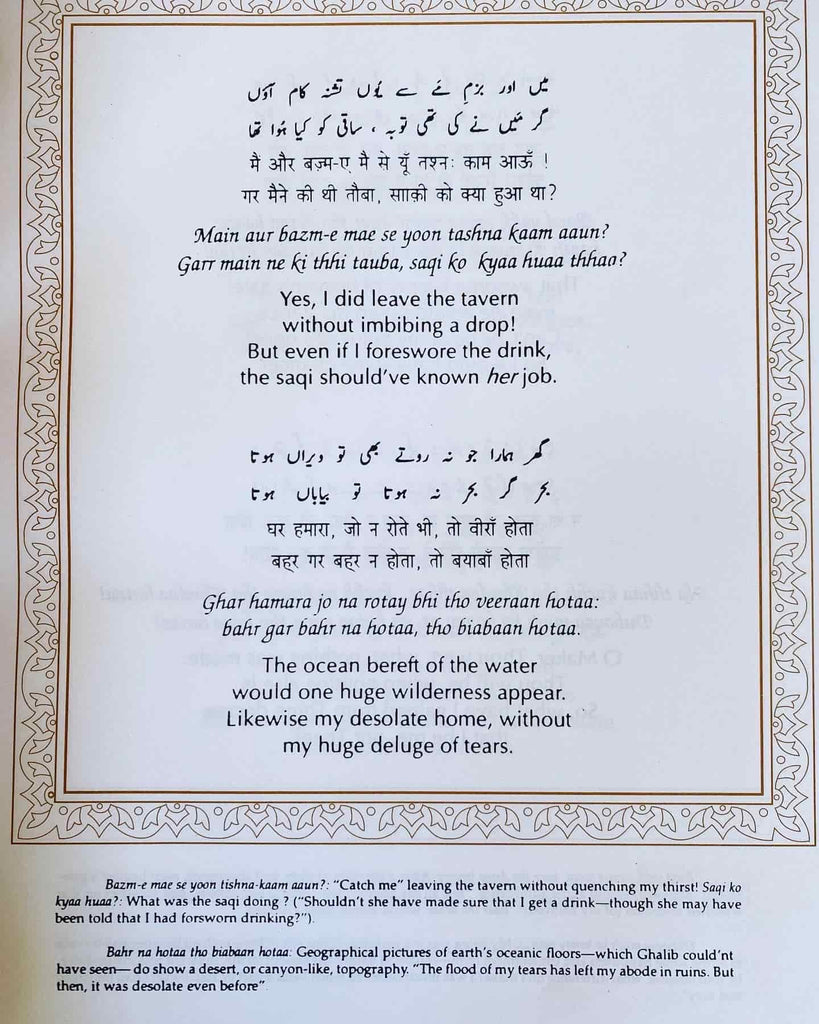 میں اور بزمِ مَے سے یُوں تشنہ کام آؤں
گر مَیں نے کی تھی توبہ ، ساقی کو کیا ہُوا تھا
मैं और बज़्म-ए मै से यूँ तश्नः काम आऊँ !
गर मैने की थी तौबा, सााक़ी को क्या हुआ था?
Main aur bazm-e mae se yoon tashna kaam aaun?
Garr main ne ki thhi tauba, saqi ko kyaa huaa thhaa?
Yes, I did leave the tavern
without imbibing a drop!
But even if I foreswore the drink,
the saqi should've known her job.
گھر ہمارا جو نہ روتے بھی تو ویراں ہوتا
بحر گر بحر نہ ہوتا تو بیاباں ہوتا
घर हमारा, जो न रोते भी, तो वीराँ होता
बहर् गर बहर न होता, तो बयाबाँ होता
Ghar hamara jo na rotay bhi tho veeraan hotaa:
bahr gar bahr na hotaa, tho biabaan hotaa.
The ocean bereft of the water
would one huge wilderness appear.
Likewise my desolate home, without
my huge deluge of tears.
Bazm-e mae se yoon tishna-kaam aaun?: "Catch me" leaving the tavern without quenching my thirst! Saqi ko
kyaa huaa?: What was the saqi doing ? ("Shouldn't she have made sure that I get a drink—though she may have
been told that I had forsworn drinking?").
Bahr na hotaa tho biabaan hotaa: Geographical pictures of earth's oceanic floors—which Ghalib could'nt
have seen— do show a desert, or canyon-like, topography. "The flood of my tears has left my abode in ruins. But
then, it was desolate even before"